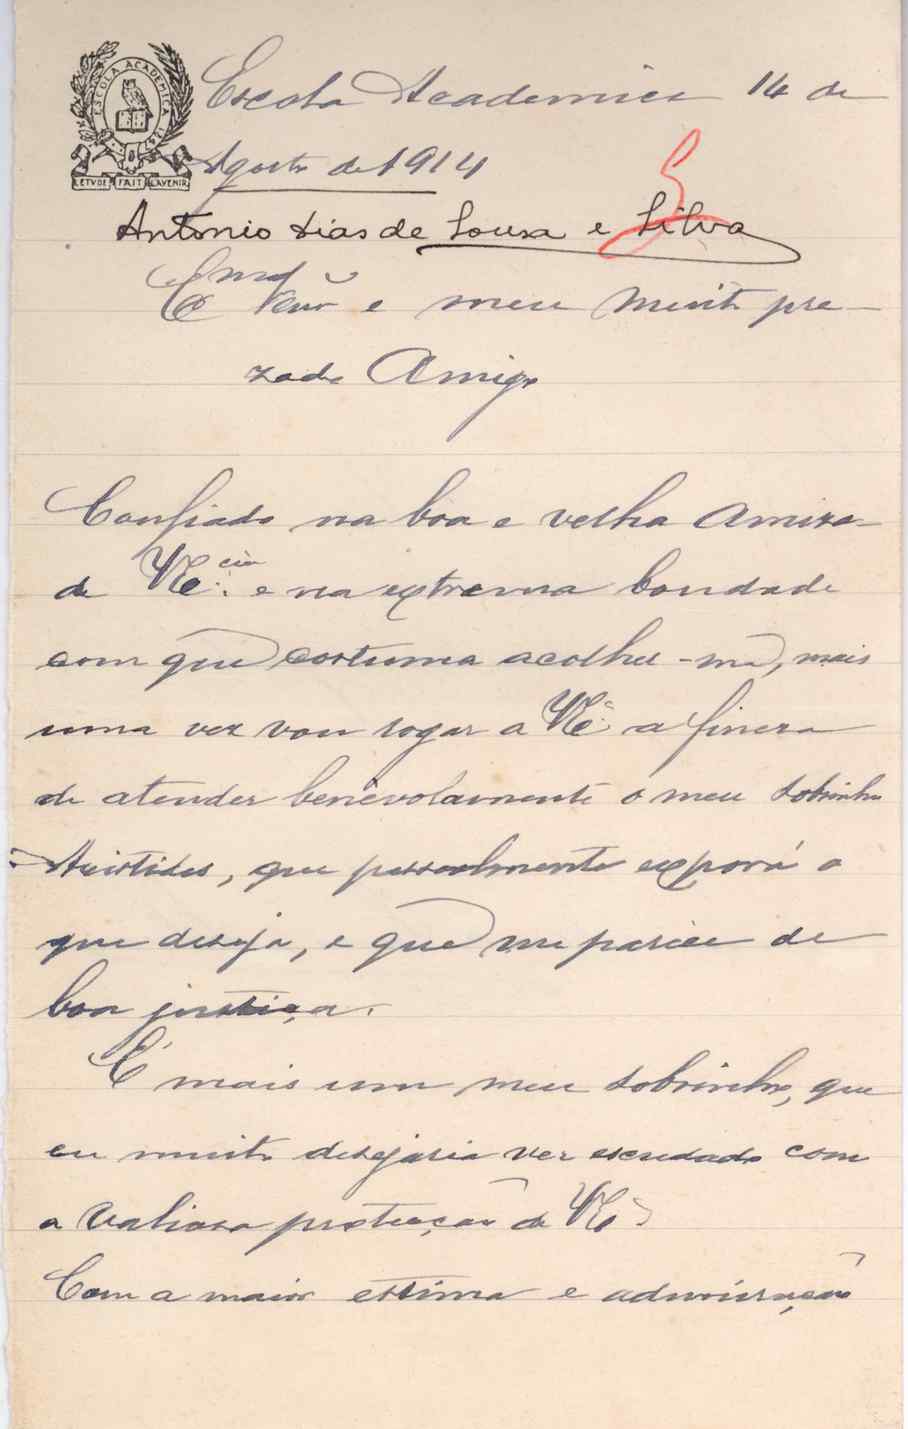 ESCOLA ACADEMICA
L'ETVDE FAIT L'AVENIR
Escola Academica 14 de
Agosto de 1914
Antonio Dias de Sousa e Silva
Exmo Senr e meu Muito pre-
zado Amigo
Confiado na boa e velha amiza-
de VEcia e na extrema bondade
com que costuma acolher-me, mais
uma vez vou rogar a VEa a fineza
de atender benévolamente o meu sobrinho
Aristides, que pessoalmente exporá o
que deseja, e que me parece de
boa justiça.
É mais um meu sobrinho, que
eu muito desejaria ver escudado com
a valiosa protecção de VEa
Com a maior estima e admiração